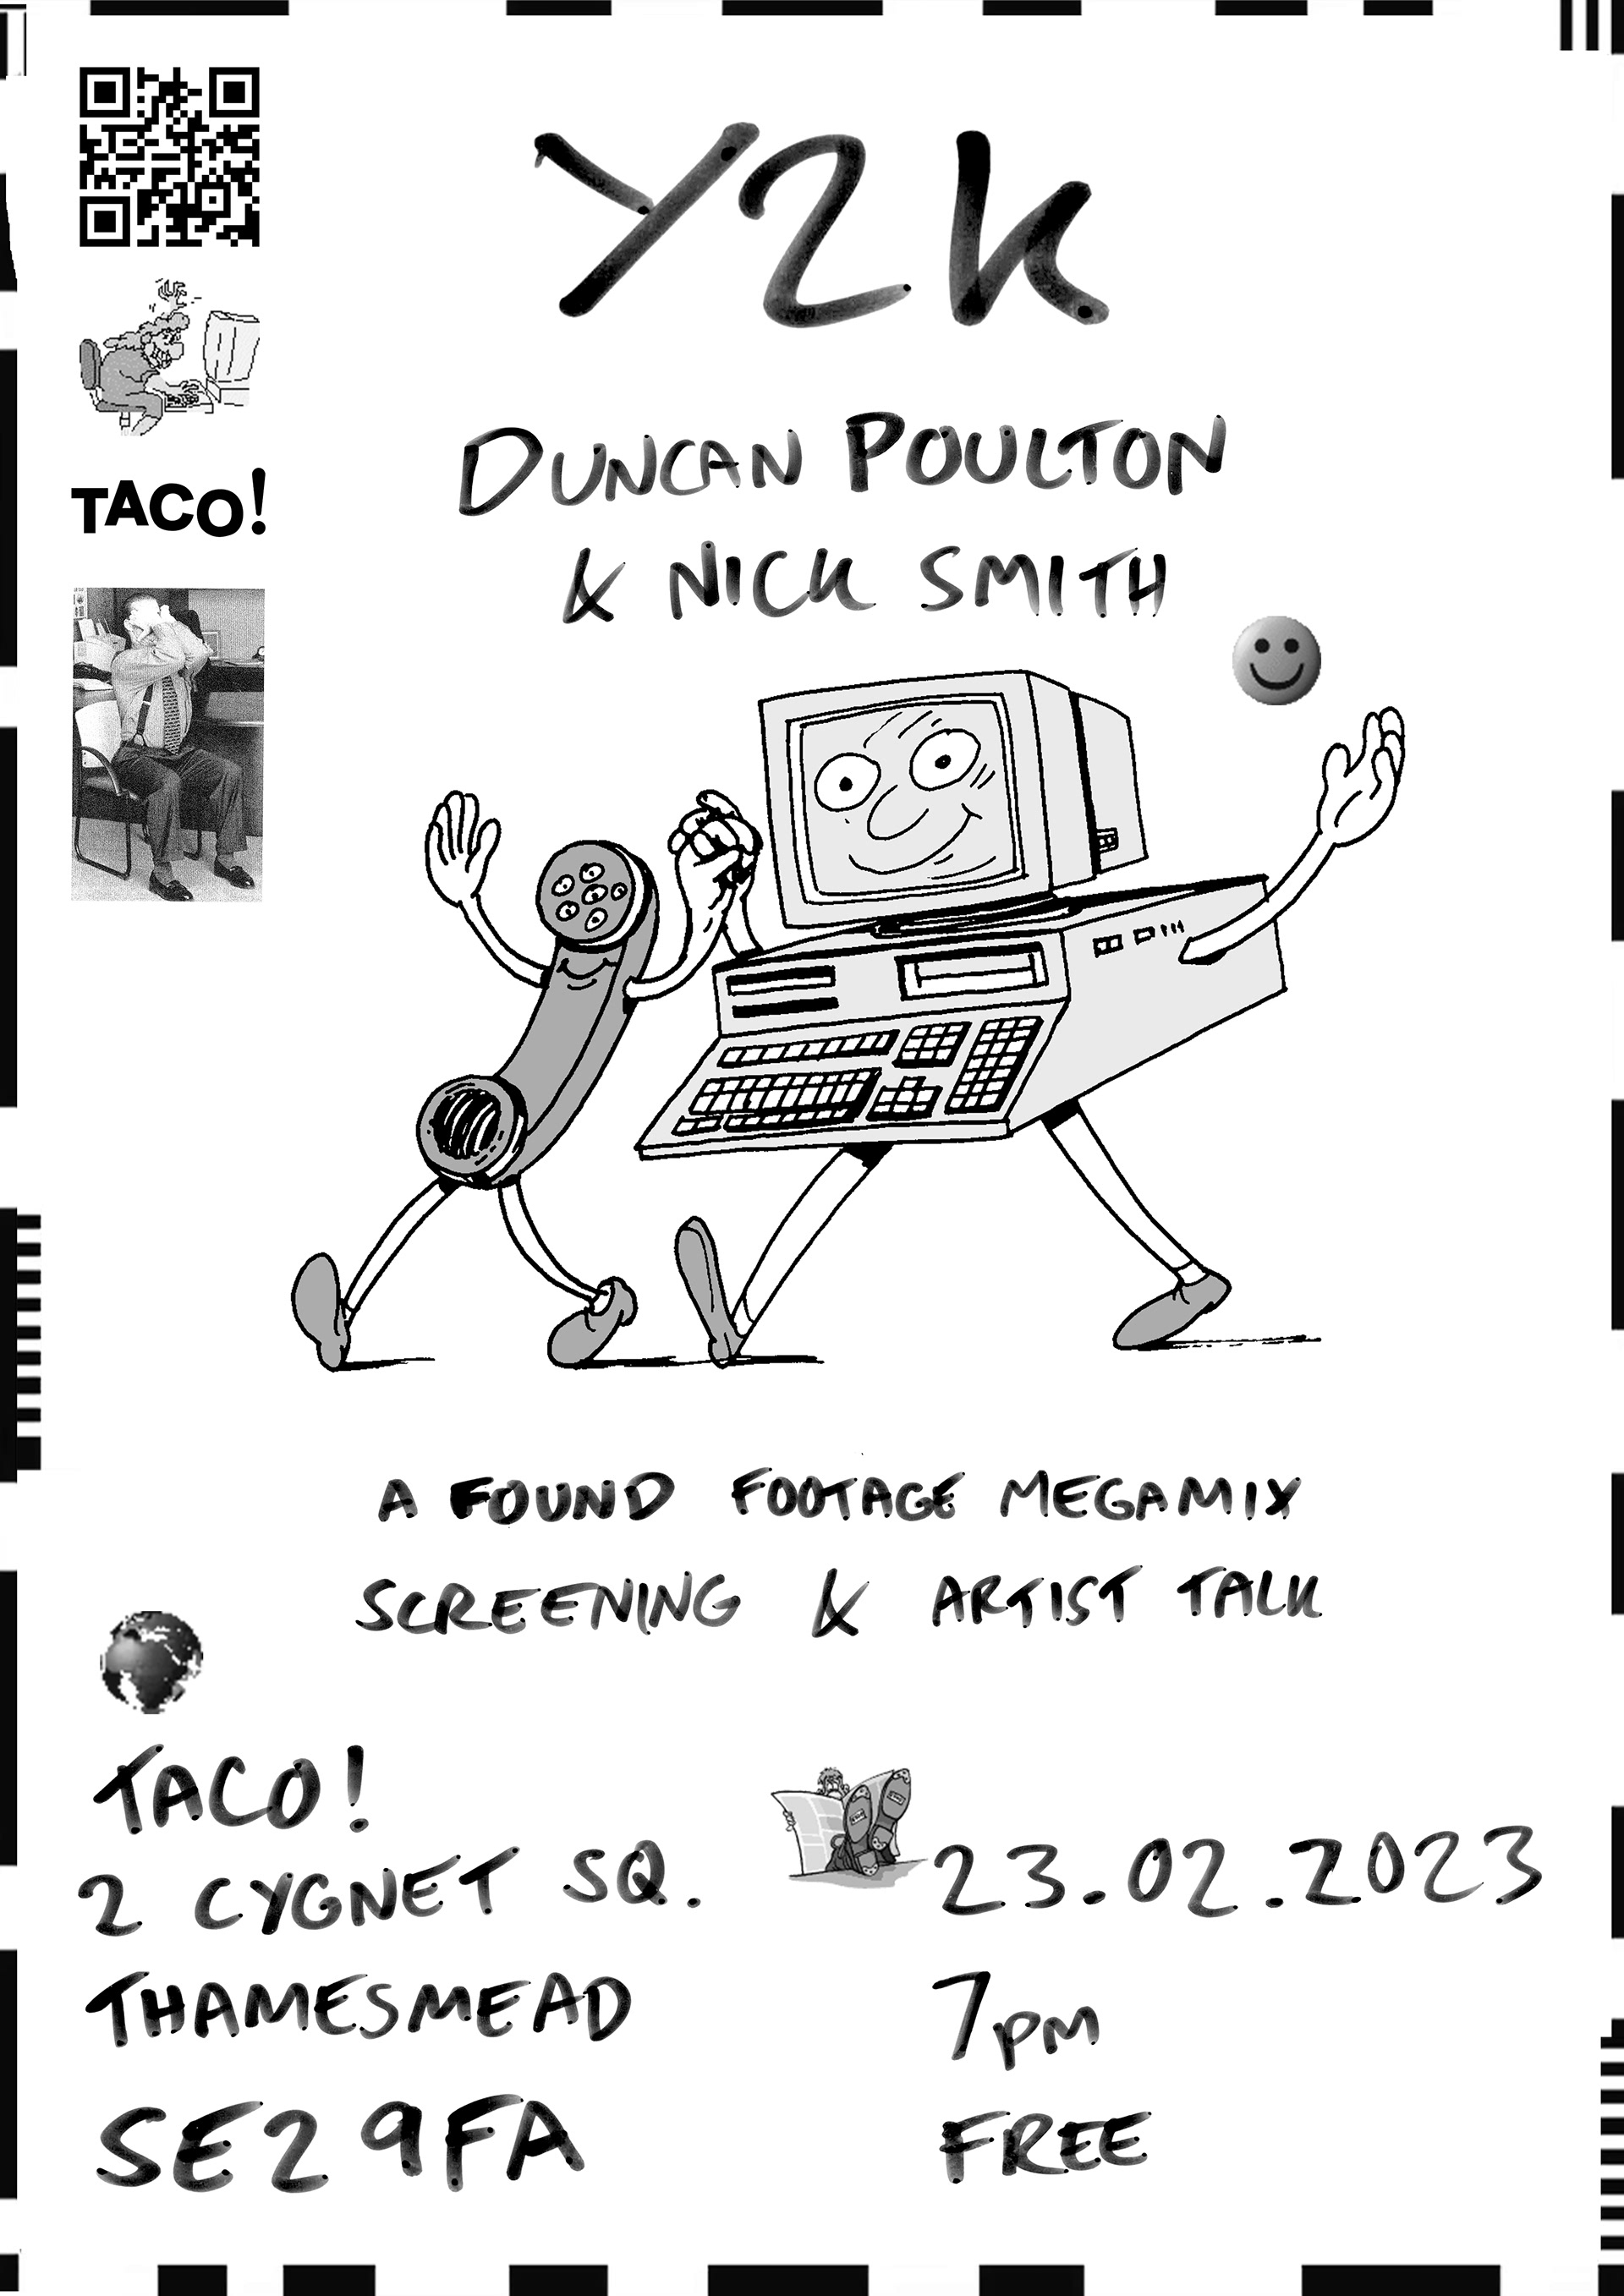 Y2K
DUNCAN POULTON
& NICK SMITH
TACO!
A FOUND FOOTAGE MEGAMIX
SCREENING & ARTIST TALK
TACO!
2 CYGNET SQ.
THAMESMEAD
SE2 9FA
23.02.2023
7pm
FREE